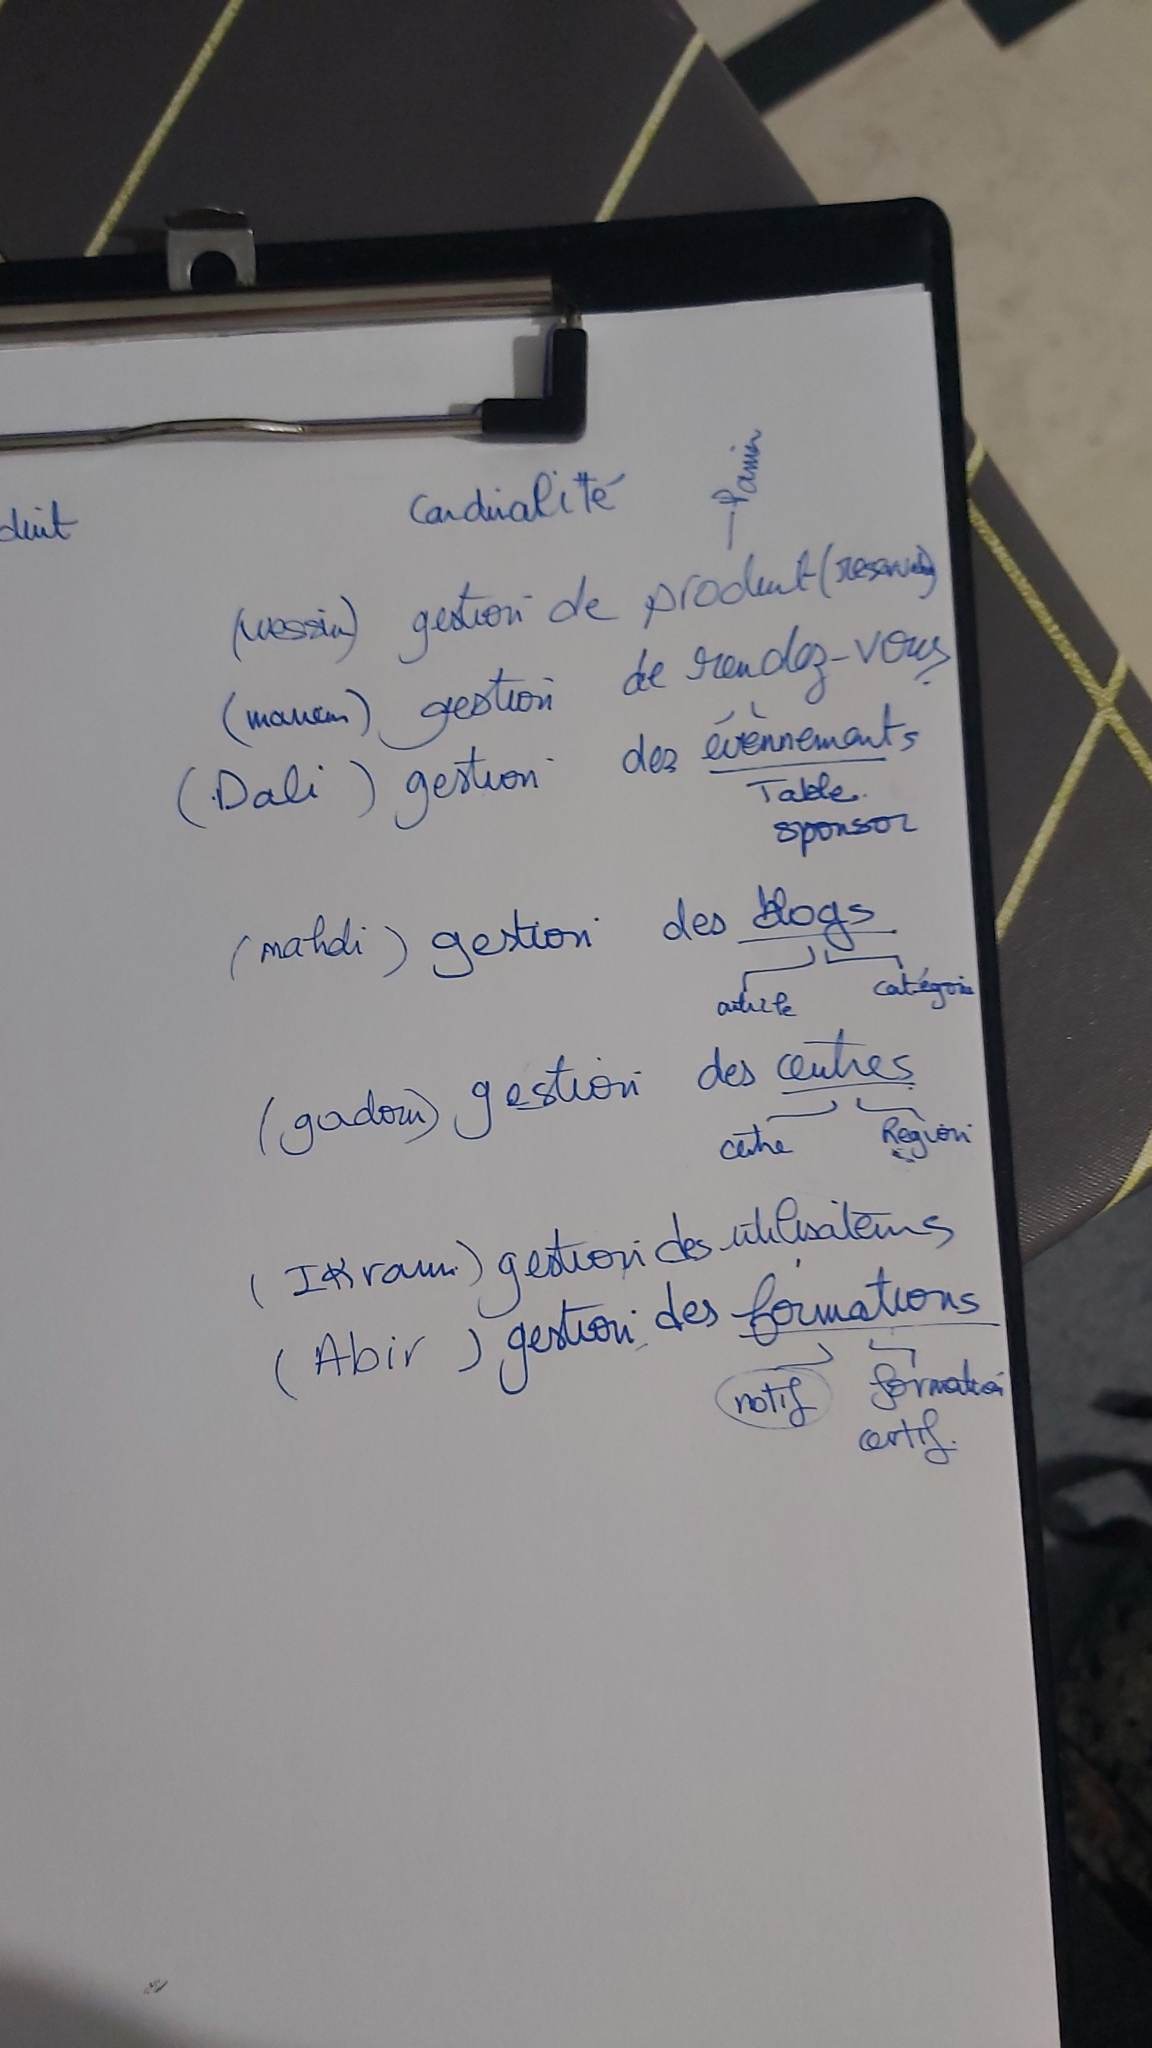 Panier
duit Cardinalité
(wassim) gestion de produit (reservation)
(mariem) gestion de rendez-vous
(Dali) gestion des évènnements
Table
sponsor
(mahdi) gestion des blogs
article catégorie
gestion des centres
centre Région
(IKram) gestion des utilisateurs
(Abir) gestion des formations
notif formation
certif.